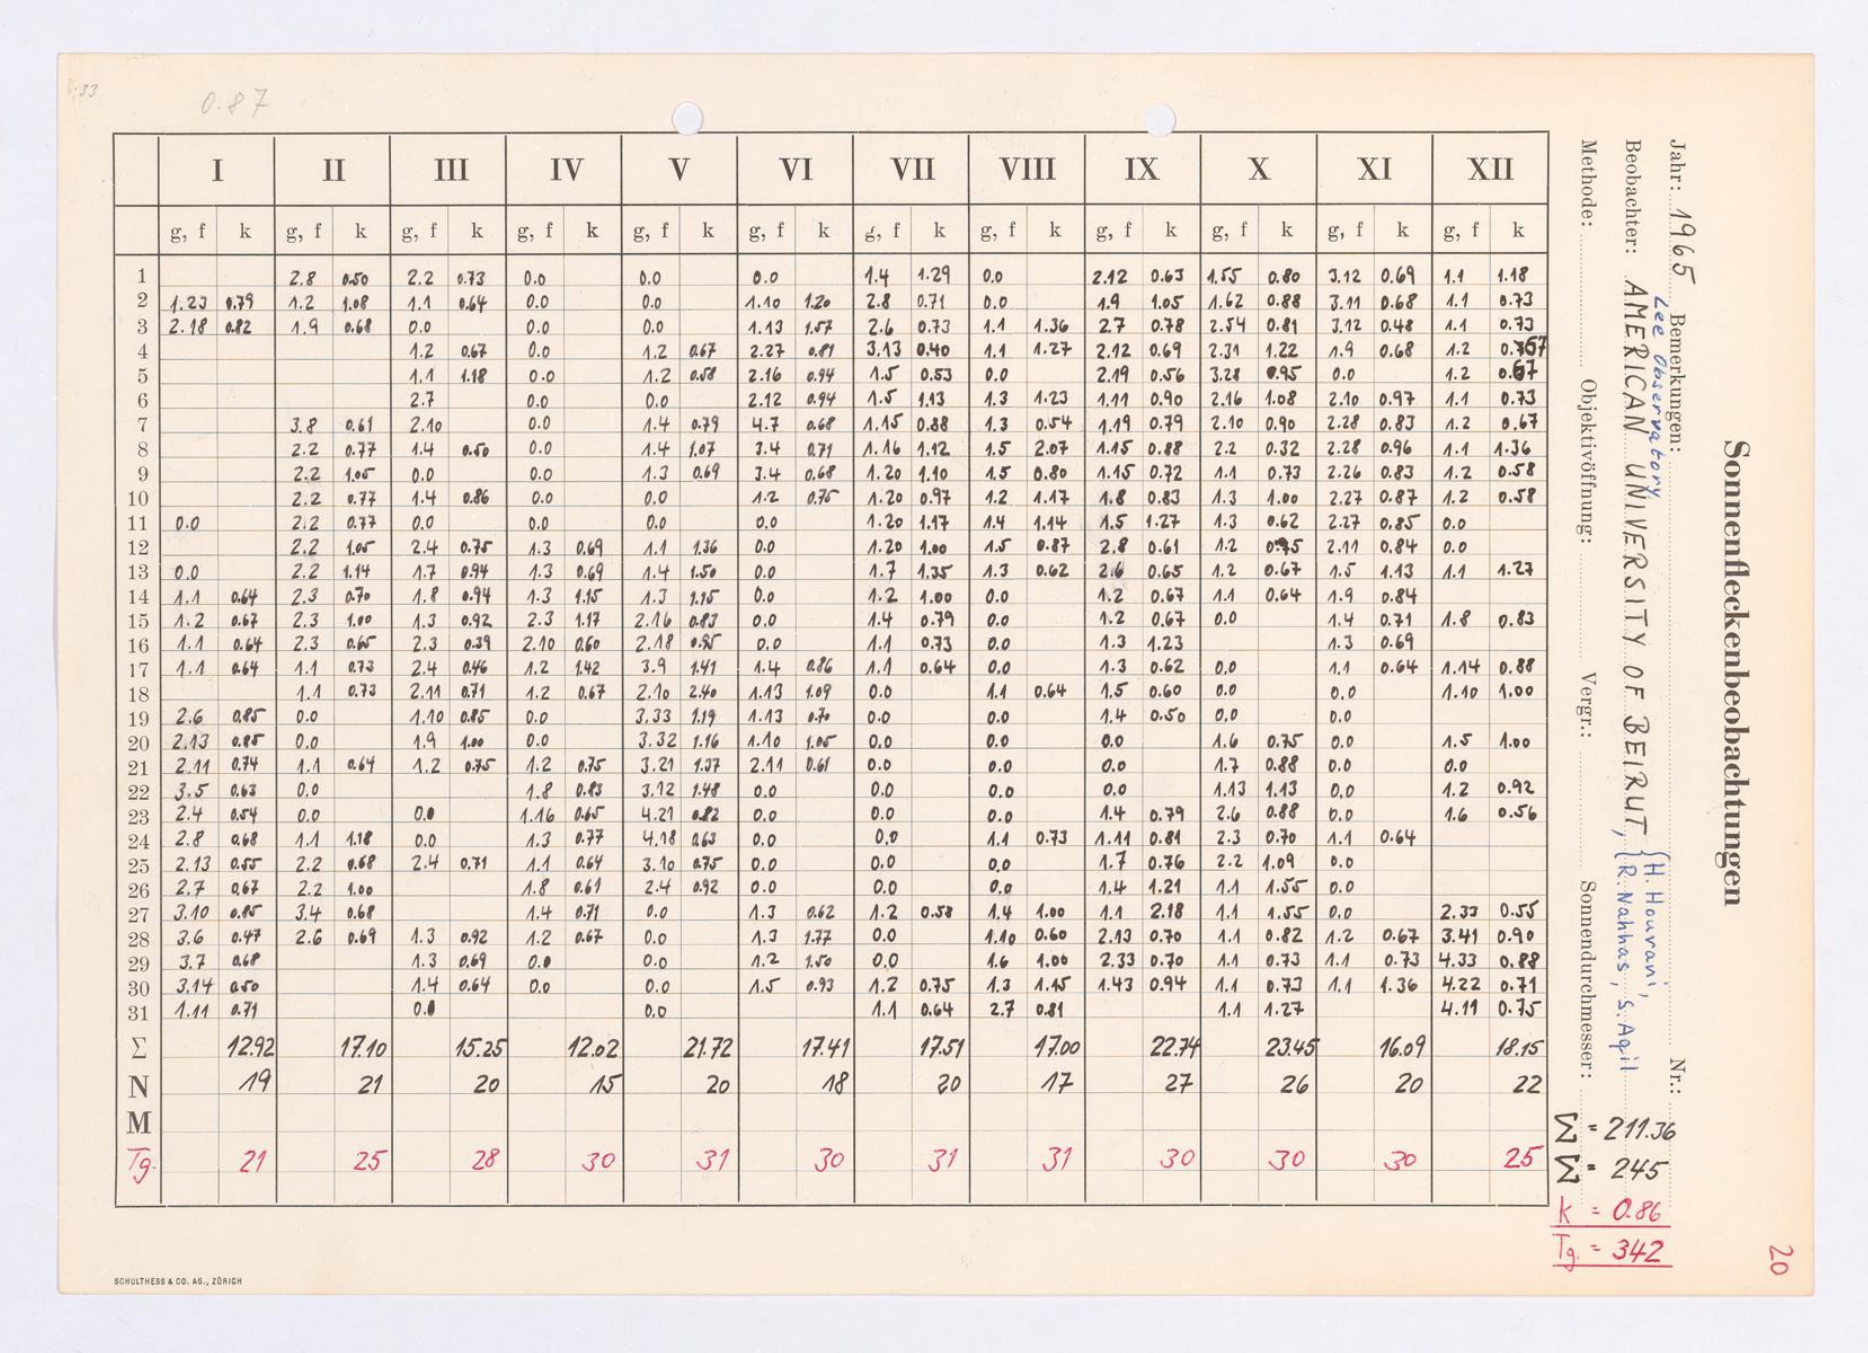 0.87
I II III IV V VI VII VIII IX X XI XII
g, f k g, f k g, f k g, f k g, f k g, f k g, f k g, f k g, f k g, f k g, f k g, f k
1 2.8 0.50 2.2 0.73 0.0 0.0 0.0 1.4 1.29 0.0 2.12 0.63 1.55 0.80 3.12 0.69 1.1 1.18
2 1.23 0.79 1.2 1.08 1.1 0.64 0.0 0.0 1.10 1.20 2.8 0.71 0.0 1.9 1.05 1.62 0.88 3.11 0.68 1.1 0.73
3 2.18 0.82 1.9 0.68 0.0 0.0 0.0 1.13 1.57 2.6 0.73 1.1 1.36 2.7 0.78 2.54 0.81 3.12 0.48 1.1 0.73
4 1.2 0.67 0.0 1.2 0.67 2.27 0.81 3.13 0.40 1.1 1.27 2.12 0.69 2.31 1.22 1.9 0.68 1.2
5 1.1 1.18 0.0 1.2 0.58 2.16 0.94 1.5 0.53 0.0 2.19 0.56 3.28 0.95 0.0 1.2 0.67
6 2.7 0.0 0.0 2.12 0.94 1.5 1.13 1.3 1.23 1.11 0.90 2.16 1.08 2.10 0.97 1.1 0.73
7 3.8 0.61 2.10 0.0 1.4 0.79 4.7 0.68 1.15 0.88 1.3 0.54 1.19 0.79 2.10 0.90 2.28 0.83 1.2 0.67
8 2.2 0.77 1.4 0.50 0.0 1.4 1.07 3.4 0.71 1.16 1.12 1.5 2.07 1.15 0.88 2.2 0.32 2.28 0.96 1.1 1.36
9 2.2 1.05 0.0 0.0 1.3 0.69 3.4 0.68 1.20 1.10 1.5 0.80 1.15 0.72 1.1 0.73 2.26 0.83 1.2 0.58
10 2.2 0.77 1.4 0.86 0.0 0.0 1.2 0.75 1.20 0.97 1.2 1.17 1.8 0.83 1.3 1.00 2.27 0.87 1.2 0.58
11 0.0 2.2 0.77 0.0 0.0 0.0 0.0 1.20 1.17 1.4 1.14 1.5 1.27 1.3 0.62 2.27 0.85 0.0
12 2.2 1.05 2.4 0.75 1.3 0.69 1.1 1.36 0.0 1.20 1.00 1.5 0.87 2.8 0.61 1.2 0.75 2.11 0.84 0.0
13 0.0 2.2 1.14 1.7 0.94 1.3 0.69 1.4 1.50 0.0 1.7 1.35 1.3 0.62 2.6 0.65 1.2 0.67 1.5 1.13 1.1 1.27
14 1.1 0.64 2.3 0.70 1.8 0.94 1.3 1.15 1.3 1.15 0.0 1.2 1.00 0.0 1.2 0.67 1.1 0.64 1.9 0.84
15 1.2 0.67 2.3 1.00 1.3 0.92 2.3 1.17 2.16 0.83 0.0 1.4 0.79 0.0 1.2 0.67 0.0 1.4 0.71 1.8 0.83
16 1.1 0.64 2.3 0.65 2.3 0.39 2.10 0.60 2.18 0.95 0.0 1.1 0.73 0.0 1.3 1.23 1.3 0.69
17 1.1 0.64 1.1 0.73 2.4 0.46 1.2 1.42 3.9 1.41 1.4 0.86 1.1 0.64 0.0 1.3 0.62 0.0 1.1 0.64 1.14 0.88
18 1.1 0.73 2.11 0.71 1.2 0.67 2.10 2.40 1.13 1.09 0.0 1.1 0.64 1.5 0.60 0.0 0.0 1.10 1.00
19 2.6 0.85 0.0 1.10 0.85 0.0 3.33 1.19 1.13 0.70 0.0 0.0 1.4 0.50 0.0 0.0
20 2.13 0.85 0.0 1.9 1.00 0.0 3.32 1.16 1.10 1.05 0.0 0.0 0.0 1.6 0.75 0.0 1.5 1.00
21 2.11 0.74 1.1 0.64 1.2 0.75 1.2 0.75 3.21 1.37 2.11 0.61 0.0 0.0 0.0 1.7 0.88 0.0 0.0
22 3.5 0.63 0.0 1.8 0.83 3.12 1.48 0.0 0.0 0.0 0.0 1.13 1.13 0.0 1.2 0.92
23 2.4 0.54 0.0 0.0 1.16 0.65 4.21 0.82 0.0 0.0 0.0 1.4 0.79 2.6 0.88 0.0 1.6 0.56
24 2.8 0.68 1.1 1.18 0.0 1.3 0.77 4.18 0.63 0.0 0.0 1.1 0.73 1.11 0.81 2.3 0.70 1.1 0.64
25 2.13 0.55 2.2 0.68 2.4 0.71 1.1 0.64 3.10 0.75 0.0 0.0 0.0 1.7 0.76 2.2 1.09 0.0
26 2.7 0.67 2.2 1.00 1.8 0.61 2.4 0.92 0.0 0.0 0.0 1.4 1.21 1.1 1.55 0.0
27 3.10 0.85 3.4 0.68 1.4 0.71 0.0 1.3 0.62 1.2 0.58 1.4 1.00 1.1 2.18 1.1 1.55 0.0 2.33 0.55
28 3.6 0.47 2.6 0.69 1.3 0.92 1.2 0.67 0.0 1.3 1.77 0.0 1.10 0.60 2.13 0.70 1.1 0.82 1.2 0.67 3.41 0.90
29 3.7 0.68 1.3 0.69 0.0 0.0 1.2 1.50 0.0 1.6 1.00 2.33 0.70 1.1 0.73 1.1 0.73 4.33 0.88
30 3.14 0.50 1.4 0.64 0.0 0.0 1.5 0.93 1.2 0.75 1.3 1.15 1.43 0.94 1.1 0.73 1.1 1.36 4.22 0.71
31 1.11 0.71 0.0 0.0 1.1 0.64 2.7 0.81 1.1 1.27 4.11 0.75
Σ 12.92 17.10 15.25 12.02 21.72 17.41 17.51 17.00 22.74 23.45 16.09 18.15
N 19 21 20 15 20 18 20 17 27 26 20 22
M
Tg. 21 25 28 30 31 30 31 31 30 30 30 25
Sonnenfleckenbeobachtungen
Jahr: 1965 Bemerkungen: Nr.:
Lee Observatory
Beobachter: AMERICAN UNIVERSITY OF BEIRUT, {H. Hourani,
R. Nahhas, S. Aqil
Methode: Objektivöffnung: Vergr.: Sonnendurchmesser:
Σ = 211.36
Σ = 245
k = 0.86
Tg. = 342
20
SCHULTHESS & CO. AG., ZÜRICH